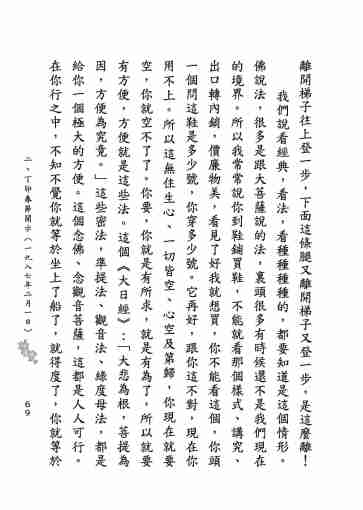 離開梯子往上登一步,下面這條腿又離開梯子又登一步。是這麼離!
我們說看經典,看法,看種種種種的,都要知道是這個情形。
佛說法,很多是跟大菩薩說的法,裏頭很多有時候還不是我們現在
的境界。所以我常常說你到鞋鋪買鞋,不能就看那個樣式、講究、
出口轉內銷,價廉物美,看見了好我就想買,你不能看這個,你頭
一個問這鞋是多少號,你穿多少號。它再好,跟你這不對,現在你
用不上。所以這無住生心、一切皆空、心空及第歸,你現在就要
空,你就空不了了。你要,你就是有所求,就是有為了,所以就要
有方便,方便就是這些法。這個《大日經》:「大悲為根,菩提為
因,方便為究竟。」這些密法,準提法、觀音法、綠度母法,都是
給你一個極大的方便。念佛、念觀音菩薩,這都是人人可行。
在你行之中,不知不覺你就等於坐上了船了,就得度了,你就等於
二、丁卯春節開示(一九八七年二月一日)
69